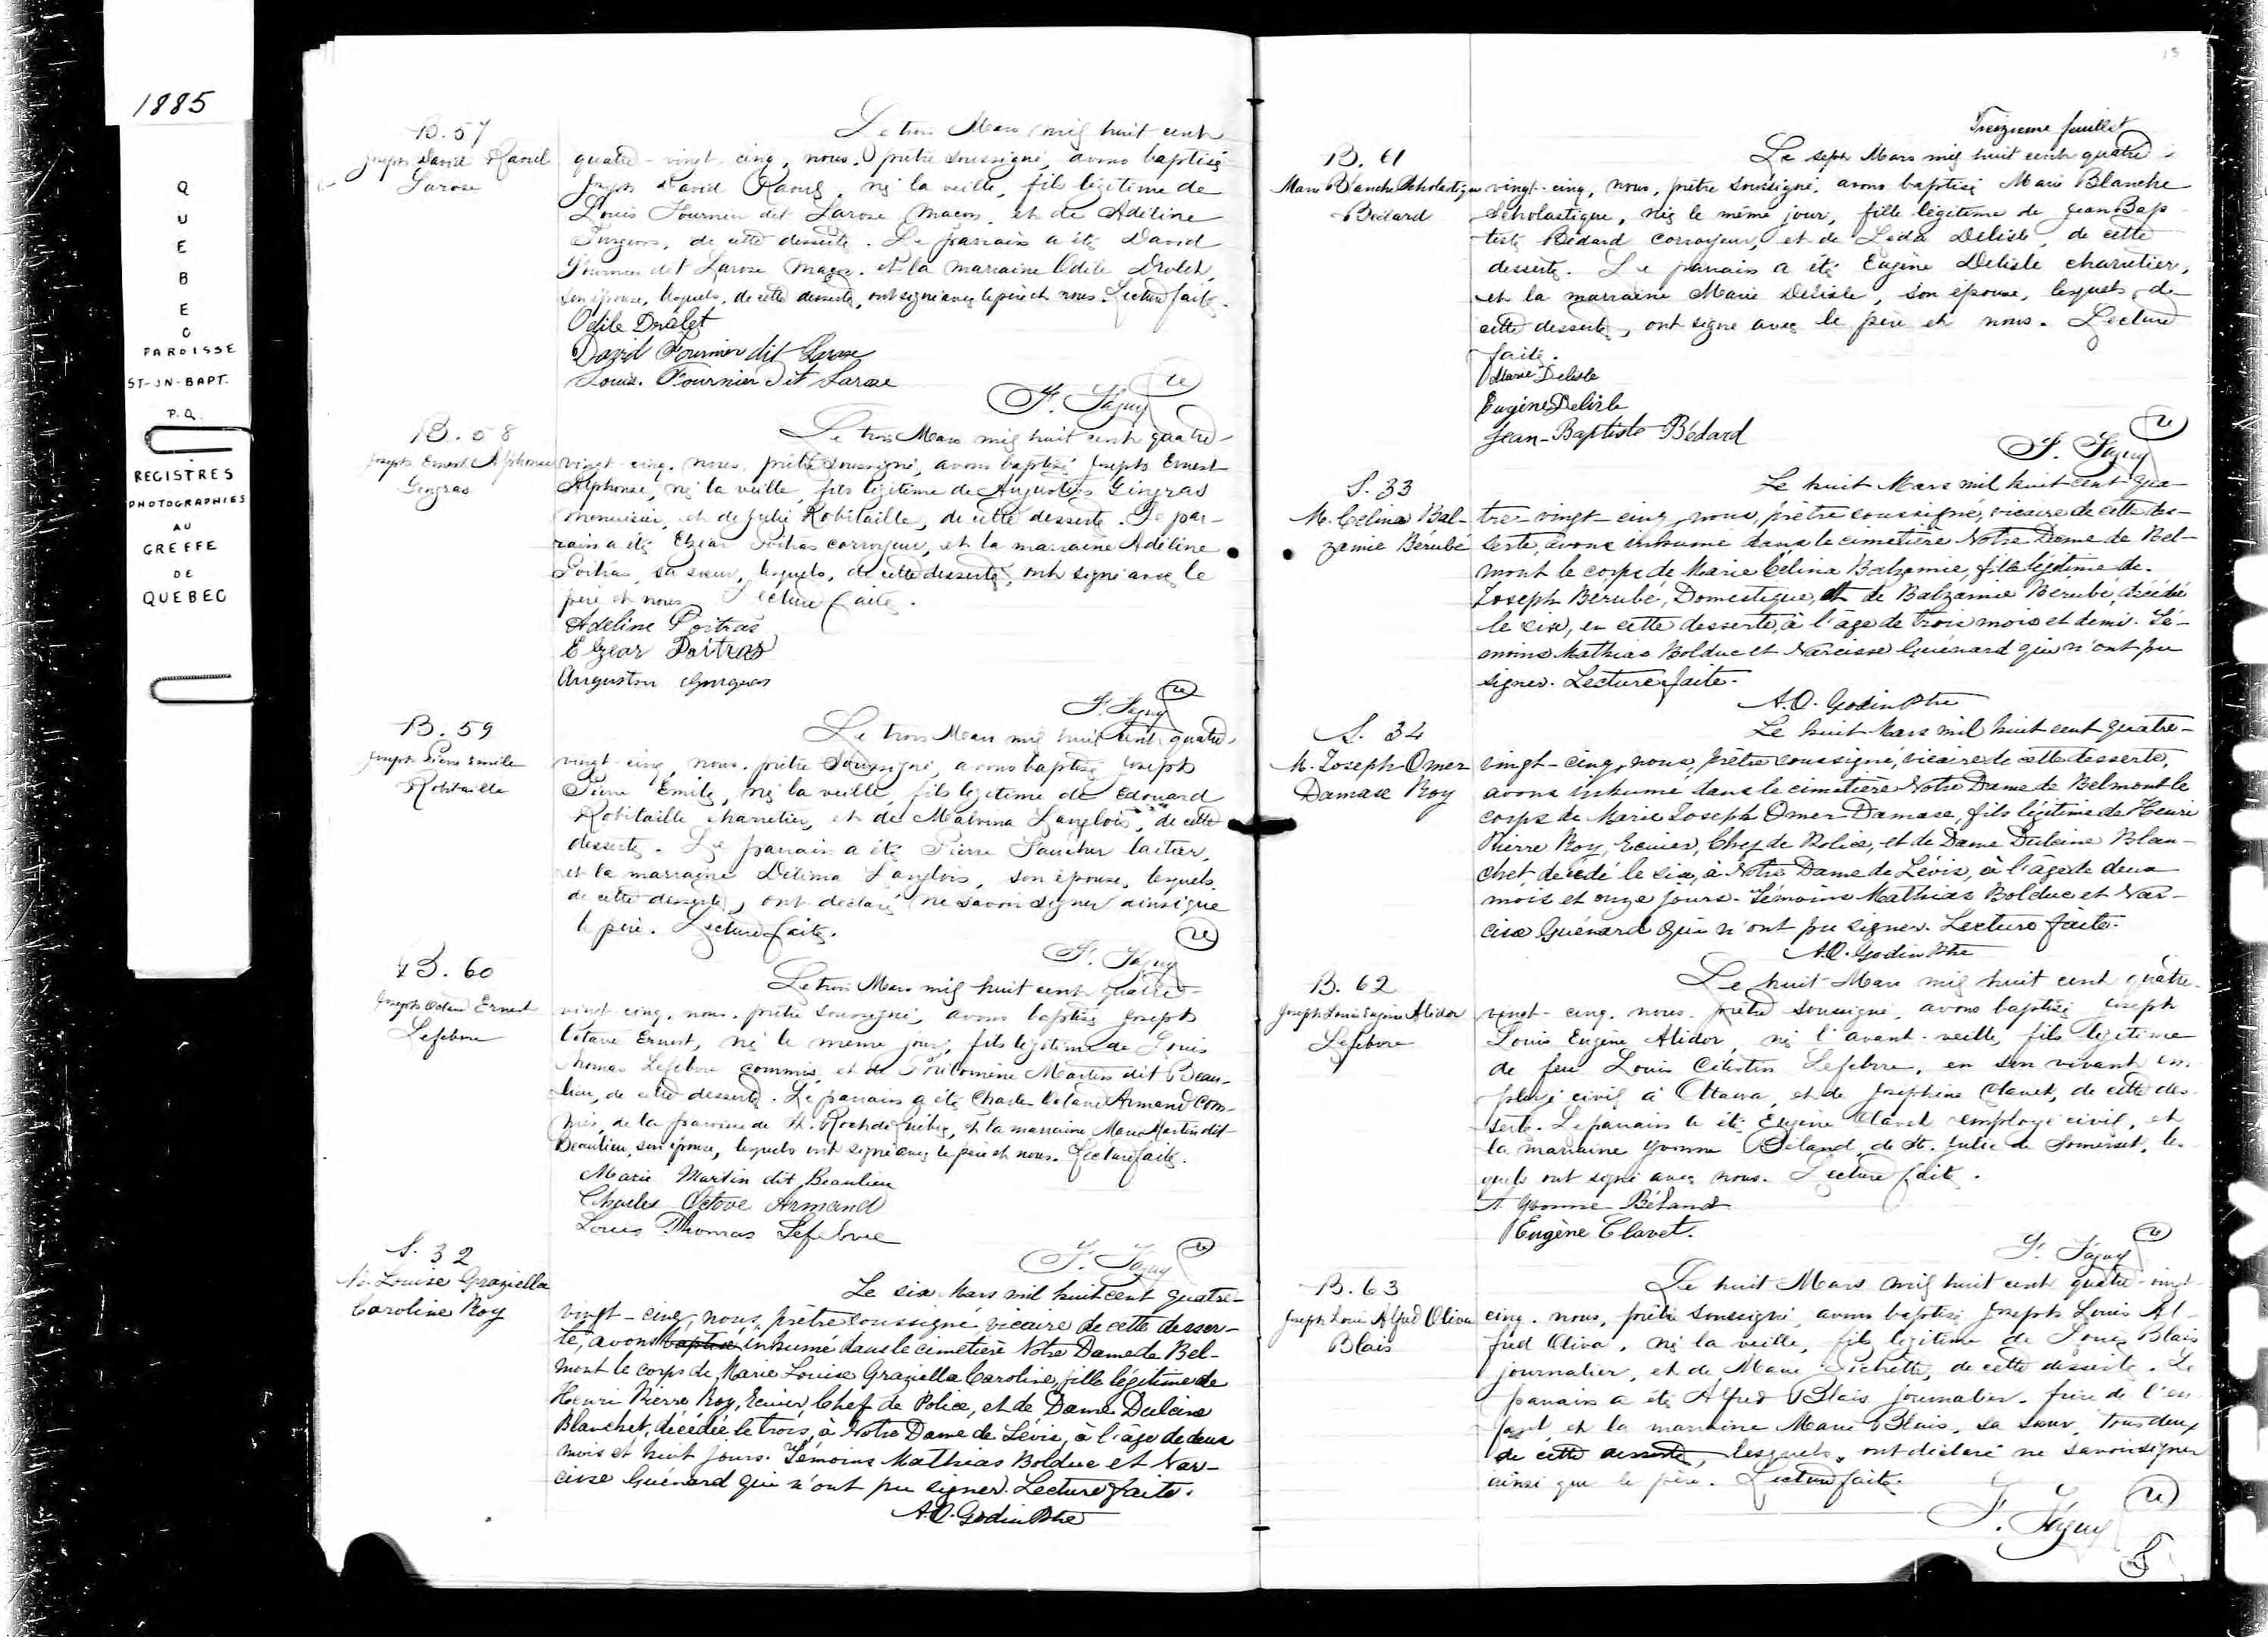 1885
QUEBEC
PAROISSE
ST-JN-BAPT.
P.Q.
REGISTRES
PHOTOGRAPHIES
AU
GREFFE
DE
QUEBEC
B. 57
Joseph David Raoul
Larose
Le trois Mars mil huit cent
quatre-vingt-cinq, nous, prêtre soussigné, avons baptisé
Joseph David Raoul, né la veille, fils légitime de
Louis Fournier dit Larose maçon, et de Adéline
Turgeon, de cette desserte. Le parrain a été David
Fournier dit Larose maçon, et la marraine Odile Drolet,
son épouse, lesquels, de cette desserte, ont signé avec le père et nous. Lecture faite.
Odile Drolet
David Fournier dit Larose
Louis. Fournier dit Larose
F. Faguy
B. 58
Joseph Ernest Alphonse
Gingras
Le trois Mars mil huit cent quatre-
vingt-cinq, nous, prêtre soussigné, avons baptisé Joseph Ernest
Alphonse, né la veille, fils légitime de Augustin Gingras
menuisier, et de Julie Robitaille, de cette desserte. Le par-
rain a été Elzéar Poitras corroyeur, et la marraine Adéline
Poitras, sa sœur, lesquels, de cette desserte, ont signé avec le
père et nous. Lecture faite.
Adeline Poitras
Elzear Poitras
Augustin Gingras
F. Faguy
B. 59
Joseph Pierre Emile
Robitaille
Le trois Mars mil huit cent quatre-
vingt-cinq, nous, prêtre soussigné, avons baptisé Joseph
Pierre Emile, né la veille, fils légitime de Edouard
Robitaille charretier, et de Malvina Langlois, de cette
desserte. Le parrain a été Pierre Faucher laitier,
et la marraine Delima Langlois, son épouse, lesquels,
de cette desserte, ont déclaré ne savoir signer ainsi que
le père. Lecture faite.
F. Faguy
B. 60
Joseph Octave Ernest
Lefebvre
Le trois Mars mil huit cent quatre-
vingt cinq, nous, prêtre soussigné, avons baptisé Joseph
Octave Ernest, né le même jour, fils légitime de Louis
Thomas Lefebvre commis, et de Philomène Martin dit Beau-
lieu, de cette desserte. Le parrain a été Charles Octave Armand com-
mis, de la paroisse de St. Roch de Québec, et la marraine Marie Martin dit
Beaulieu, son épouse, lesquels ont signé avec le père et nous. Lecture faite.
Marie Martin dit Beaulieu
Charles Octave Armand
Louis Thomas Lefebvre
F. Faguy
S. 32
M. Louise Graziella
Caroline Roy
Le six Mars mil huit cent quatre-
vingt-cinq, nous, prêtre soussigné vicaire de cette desser-
te, avons baptisé inhumé dans le cimetière Notre Dame de Bel-
mont le corps de Marie Louise Graziella Caroline, fille légitime de
Henri Pierre Roy, Ecuier, Chef de Police, et de Dame Dulcine
Blanchet, décédée le trois, à Notre Dame de Lévis, à l'âge de deux
mois et huit jours. Témoins Mathias Bolduc et Nar-
cisse Guénard qui n'ont pu signer. Lecture faite.
A.O. Godin Ptre
13
Treizieme feuillet
B. 61
Marie Blanche Scholastique
Bédard
Le sept Mars mil huit cent quatre-
vingt-cinq, nous, prêtre soussigné, avons baptisé Marie Blanche
Scholastique, née le même jour, fille légitime de Jean Bap-
tiste Bédard corroyeur, et de Léda Delisle, de cette
desserte. Le parrain a été Eugène Delisle charretier,
et la marraine Marie Delisle, son épouse, lesquels, de
cette desserte, ont signé avec le père et nous. Lecture
faite.
Marie Delisle
Eugène Delisle
Jean-Baptiste Bédard
F. Faguy
S. 33
M. Celina Bal-
zamie Bérubé
Le huit Mars mil huit cent qua-
tre-vingt-cinq, nous, prêtre soussigné, vicaire de cette des-
serte, avons inhumé dans le cimetière Notre Dame de Bel-
mont le corps de Marie Célina Balzamie, fille légitime de
Joseph Bérubé, Domestique, et de Balzamie Bérubé, décédée
le six, en cette desserte, à l'âge de trois mois et demi. Té-
moins Mathias Bolduc et Narcisse Guénard qui n'ont pu
signer. Lecture faite.
A.O. Godin Ptre
S. 34
M. Joseph Omer
Damase Roy
Le huit Mars mil huit cent quatre-
vingt-cinq, nous, prêtre soussigné, vicaire de cette desserte,
avons inhumé dans le cimetière Notre Dame de Belmont le
corps de Marie Joseph Omer Damase, fils légitime de Henri
Pierre Roy, Ecuier, Chef de Police, et de Dame Dulcine Blan-
chet, décédé le six, à Notre Dame de Lévis, à l'âge de deux
mois et onze jours. Témoins Mathias Bolduc et Nar-
cisse Guénard qui n'ont pu signer. Lecture faite.
A.O. Godin Ptre
B. 62
Joseph Louis Eugène Alidor
Lefebvre
Le huit Mars mil huit cent quatre-
vingt-cinq, nous, prêtre soussigné, avons baptisé Joseph
Louis Eugène Alidor, né l'avant-veille, fils légitime
de feu Louis Célestin Lefebvre, en son vivant em-
ployé civil à Ottawa, et de Joséphine Clavet, de cette des-
serte. Le parrain a été Eugène Clavet employé civil, et
la marraine Yvonne Béland, de Ste. Julie de Somerset, les-
quels ont signé avec nous. Lecture faite.
Yvonne Béland
Eugène Clavet.
F. Faguy
B. 63
Joseph Louis Alfred Oliva
Blais
Le huit Mars mil huit cent quatre-vingt-
cinq, nous, prêtre soussigné, avons baptisé Joseph Louis Al-
fred Oliva, né la veille, fils légitime de Louis Blais
journalier, et de Marie Pichette, de cette desserte. Le
parrain a été Alfred Blais journalier, frère de l'en-
fant, et la marraine Marie Blais, sa sœur, tous deux
de cette desserte, lesquels, ont déclaré ne savoir signer
ainsi que le père. Lecture faite.
F. Faguy